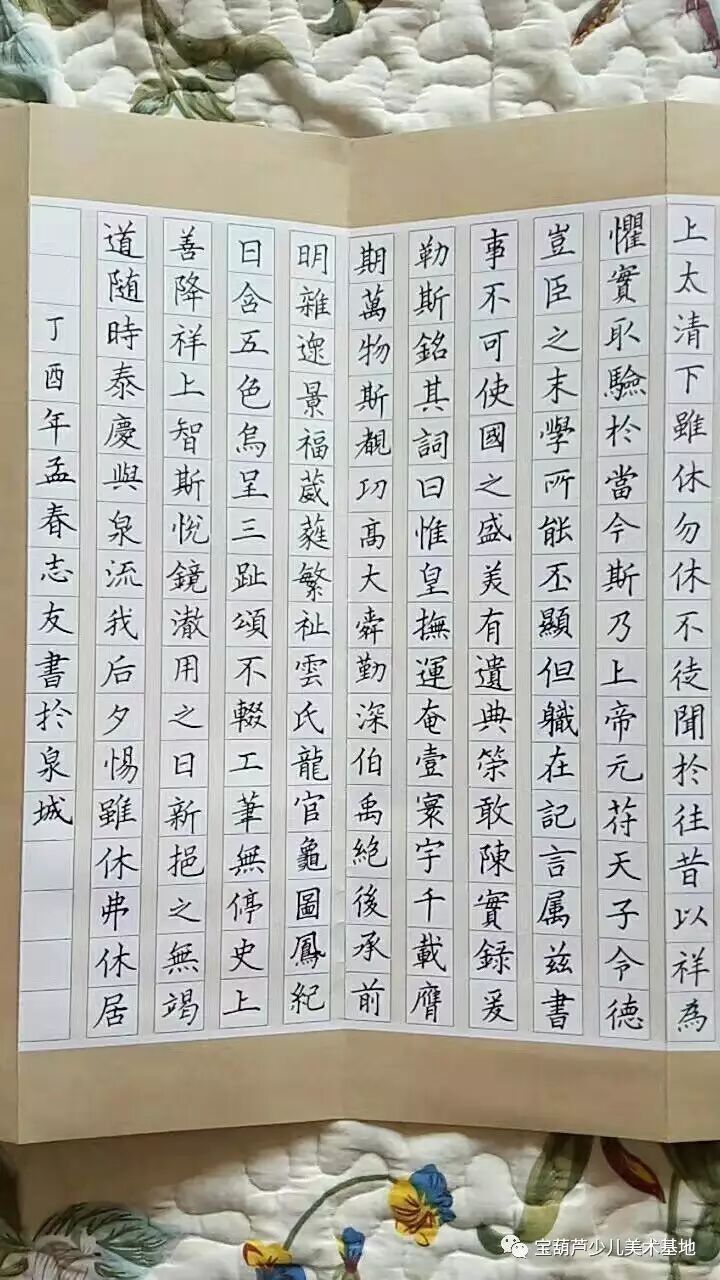 上太清下雖休勿休不徒聞於往昔以祥為
懼實取驗於當今斯乃上帝元符天子令德
豈臣之末學所能丕顯但軄在記言属兹書
事不可使國之盛美有遺典榮敢陳實録爰
勒斯銘其詞曰惟皇撫運奄壹寰宇千載膺
期萬物斯覩功高大舜勤深伯禹絶後承前
明雜遝景福葳蕤繁祉雲氏龍官龜圖鳳紀
日含五色烏呈三趾頌不輟工筆無停史上
善降祥上智斯悅鏡澈用之日新挹之無竭
道随時泰慶與泉流我后夕惕雖休弗休居
丁酉年孟春志友書於泉城
宝葫芦少儿美术基地